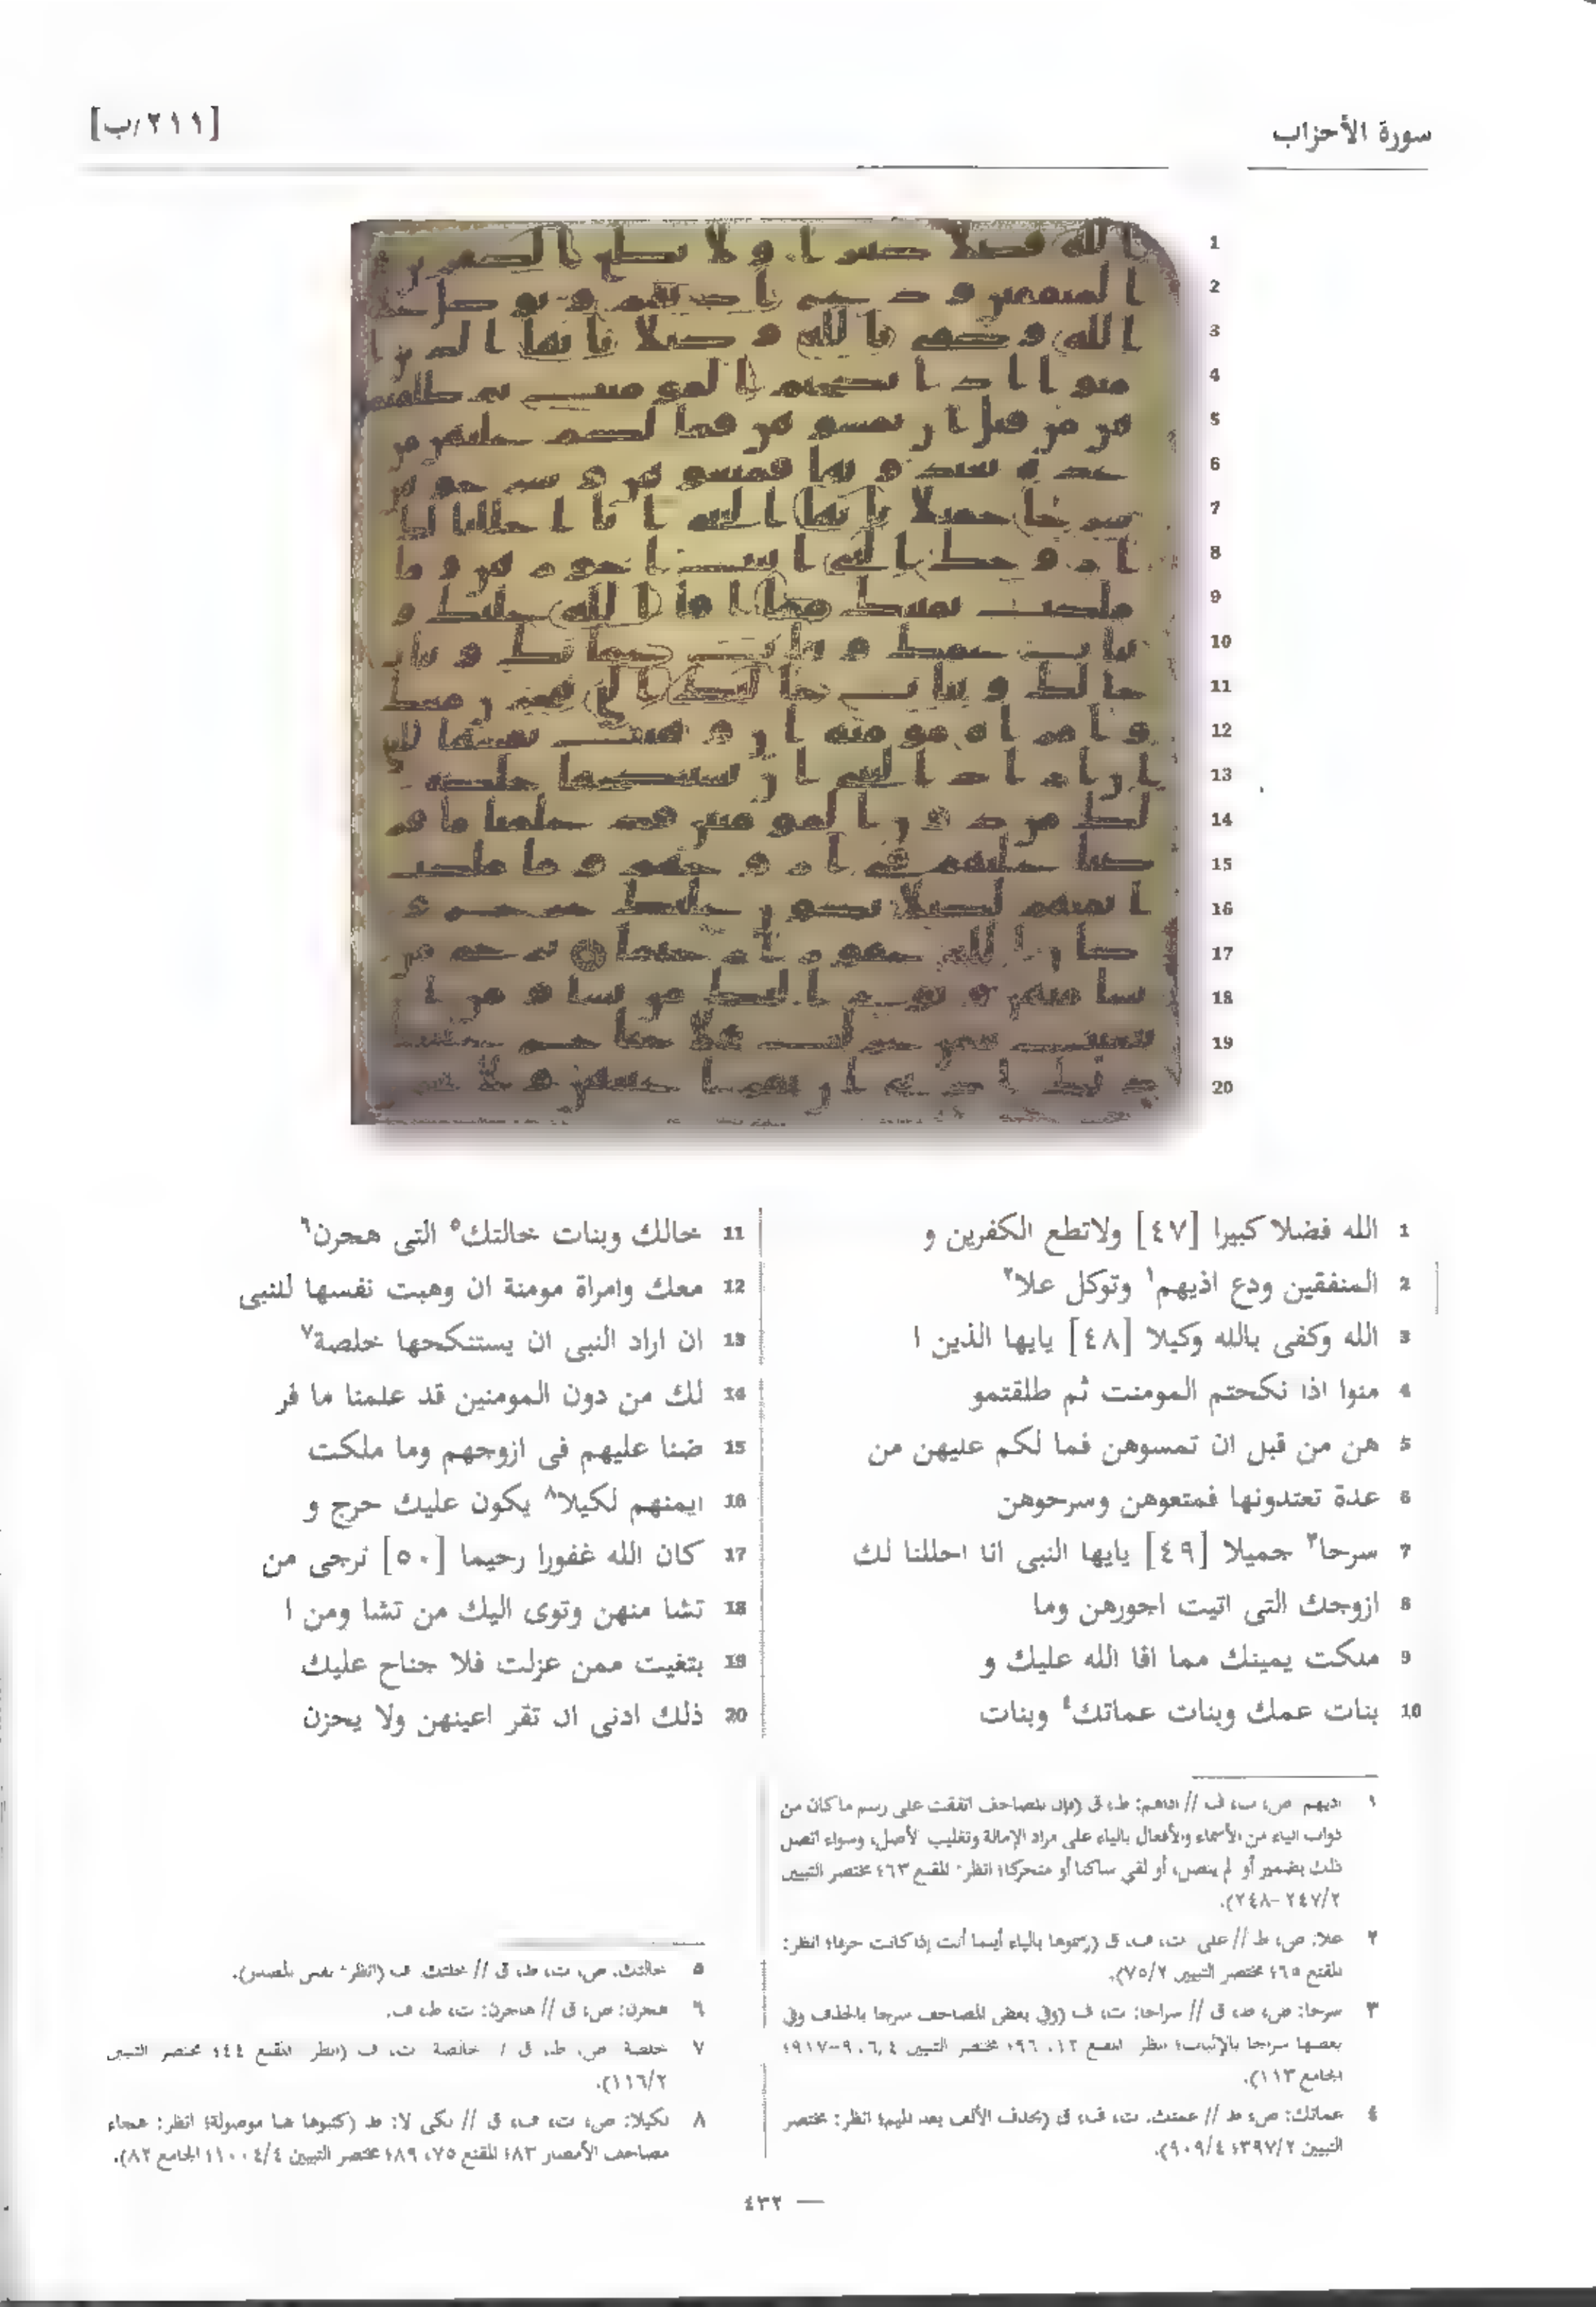 سورة الأحزاب
[٢١١/ب]
1 الله فضلا كبيرا [٤٧] ولاتطع الكفرين و
2 المنفقين ودع اذيهم١ وتوكل علا٢
3 الله وكفى بالله وكيلا [٤٨] يايها الذين ا
4 منوا اذا نكحتم المومنت ثم طلقتمو
5 هن من قبل ان تمسوهن فما لكم عليهن من
6 عدة تعتدونها فمتعوهن وسرحوهن
7 سرحا٣ جميلا [٤٩] يايها النبى انا احللنا لك
8 ازوجك التى اتيت اجورهن وما
9 ملكت يمينك مما افا الله عليك و
10 بنات عمك وبنات عماتك٤ وبنات
11 خالك وبنات خالتك٥ التى هجرن٦
12 معك وامراة مومنة ان وهبت نفسها للنبى
13 ان اراد النبى ان يستنكحها خلصة٧
14 لك من دون المومنين قد علمنا ما فر
15 ضنا عليهم فى ازوجهم وما ملكت
16 ايمنهم لكيلا٨ يكون عليك حرج و
17 كان الله غفورا رحيما [٥٠] ترجى من
18 تشا منهن وتوى اليك من تشا ومن ا
19 بتغيت ممن عزلت فلا جناح عليك
20 ذلك ادنى ان تقر اعينهن ولا يحزن
١ اذيهم: ص، ت، ف // اذاهم: ط، ق (فإن المصاحف اتفقت على رسم ما كان من
ذوات الياء من الأسماء والأفعال بالياء على مراد الإمالة وتغليب الأصل، وسواء اتصل
ذلك بضمير أو لم يتصل، أو لقي ساكنا أو متحركا؛ انظر: المقنع ٦٣؛ مختصر التبيين
٢/٢٤٧-٢٤٨).
٢ علا: ص، ط // على: ت، ف، ق (رسموها بالياء أينما أتت إذا كانت حرفا؛ انظر:
المقنع ٦٥؛ مختصر التبيين ٧٥/٢).
٣ سرحا: ص، ط، ق // سراحا: ت، ف (وفي بعض المصاحف سرحا بالحذف وفي
بعضها سراحا بالإثبات؛ انظر: المقنع ١٢، ٩٦؛ مختصر التبيين
الجامع ١١٣).
٤ عماتك: ص، ط // عمتك: ت، ف، ق (بحذف الألف بعد الميم؛ انظر: مختصر
التبيين ٣٩٧/٢؛ ٩٠٩/٤).
٥ خالتك: ص، ت، ط، ق // خلتك: ف (انظر: نفس المصدر).
٦ هجرن: ص، ق // هاجرن: ت، ط، ف.
٧ خلصة: ص، ط، ق // خالصة: ت، ف (انظر: المقنع ٤٤؛ مختصر التبيين
١١٦/٢).
٨ لكيلا: ص، ت، ف، ق // لكى لا: ط (كتبوها هنا موصولة؛ انظر: هجاء
مصاحف الأمصار ٨٣؛ المقنع ٧٥، ٨٩؛ مختصر التبيين ١٠٠٤/٤؛ الجامع ٨٢).
— ٤٣٢